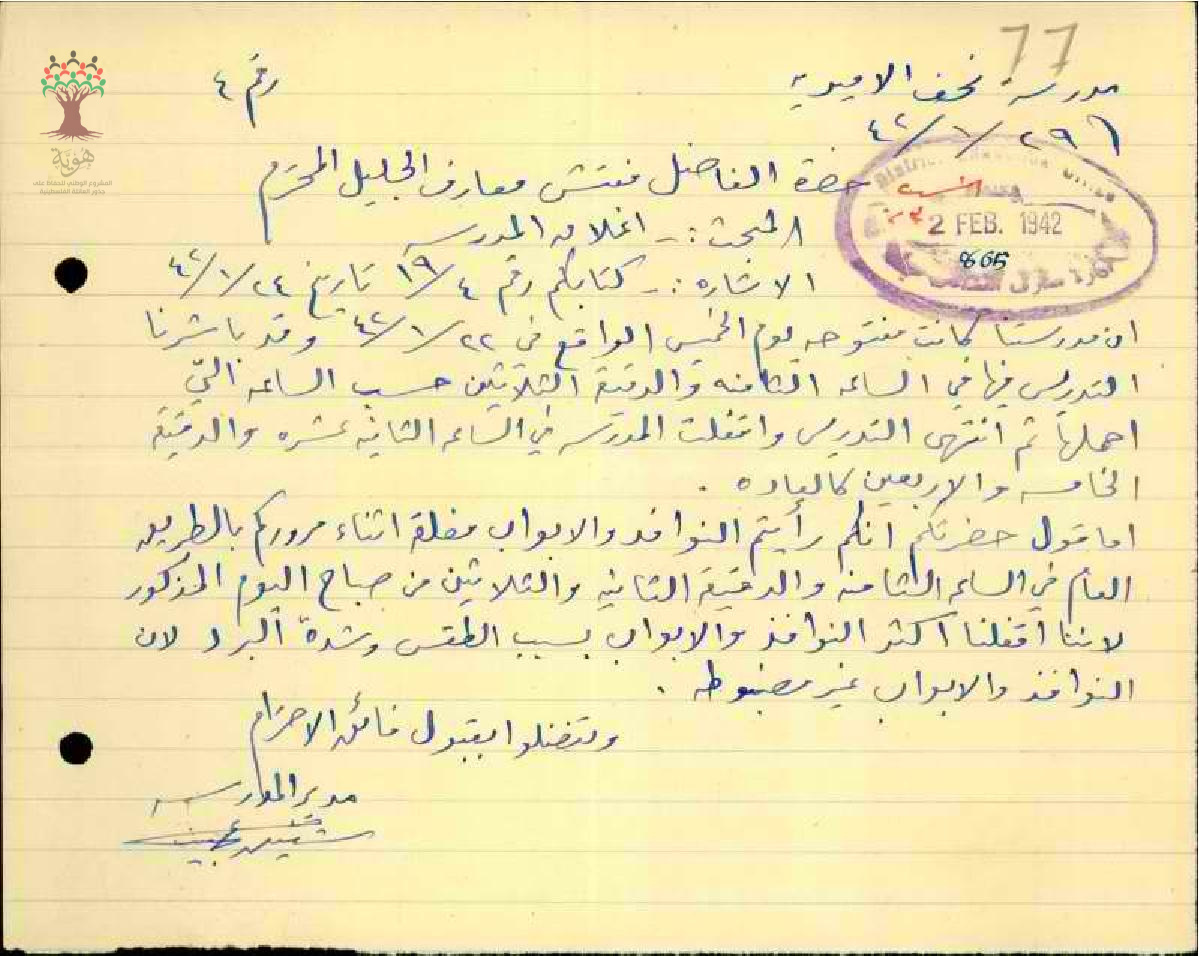 77
مدرسة نحف الاميرية
رقم ٤
٢٩/١/٤٢
حضرة الفاضل مفتش معارف الجليل المحترم
المبحث :- اغلاق المدرسه
الاشاره :- كتابكم رقم ١٩/٤ تاريخ ٢٤/١/٤٢
ان مدرستنا كانت مفتوحه يوم الخميس الواقع في ٢٢/١/٤٢ وقد باشرنا
التدريس فيها في الساعه الثامنه والدقيقة الثلاثين حسب الساعه التي
احملها ثم انتهى التدريس واقفلت المدرسه في الساعه الثانية عشره والدقيقة
الخامسه والاربعين كالعاده .
اما قول حضرتكم انكم رأيتم النوافذ والابواب مغلقة اثناء مروركم بالطريق
العام في الساعه الثامنه والدقيقة الثانيه والثلاثين من صباح اليوم المذكور
لاننا اقفلنا اكثر النوافذ والابواب بسبب الطقس وشدة البرد لان
النوافذ والابواب غير مضبوطه .
وتفضلوا بقبول فائق الاحترام
مدير المدرسه
District Education Office
2 FEB. 1942
865
هُوِيَّة
المشروع الوطني للحفاظ على
جذور العائلة الفلسطينية